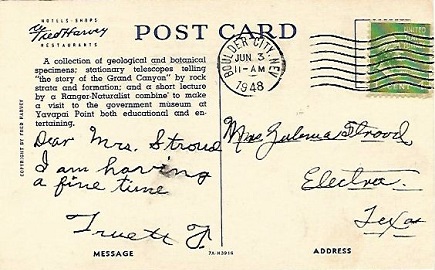 HOTELS · SHOPS
Fred Harvey
RESTAURANTS
POST CARD
A collection of geological and botanical
specimens; stationary telescopes telling
"the story of the Grand Canyon" by rock
strata and formation; and a short lecture
by a Ranger-Naturalist combine to make
a visit to the government museum at
Yavapai Point both educational and en-
tertaining.
COPYRIGHT BY FRED HARVEY
BOULDER CITY, NEV.
JUN 3
11-AM
1948
UNITED
Dear Mrs. Stroud
I am having
a fine time
Truett J.
Mrs. Zulema Strood
Electra.
Texas
MESSAGE
7A-H3916
ADDRESS